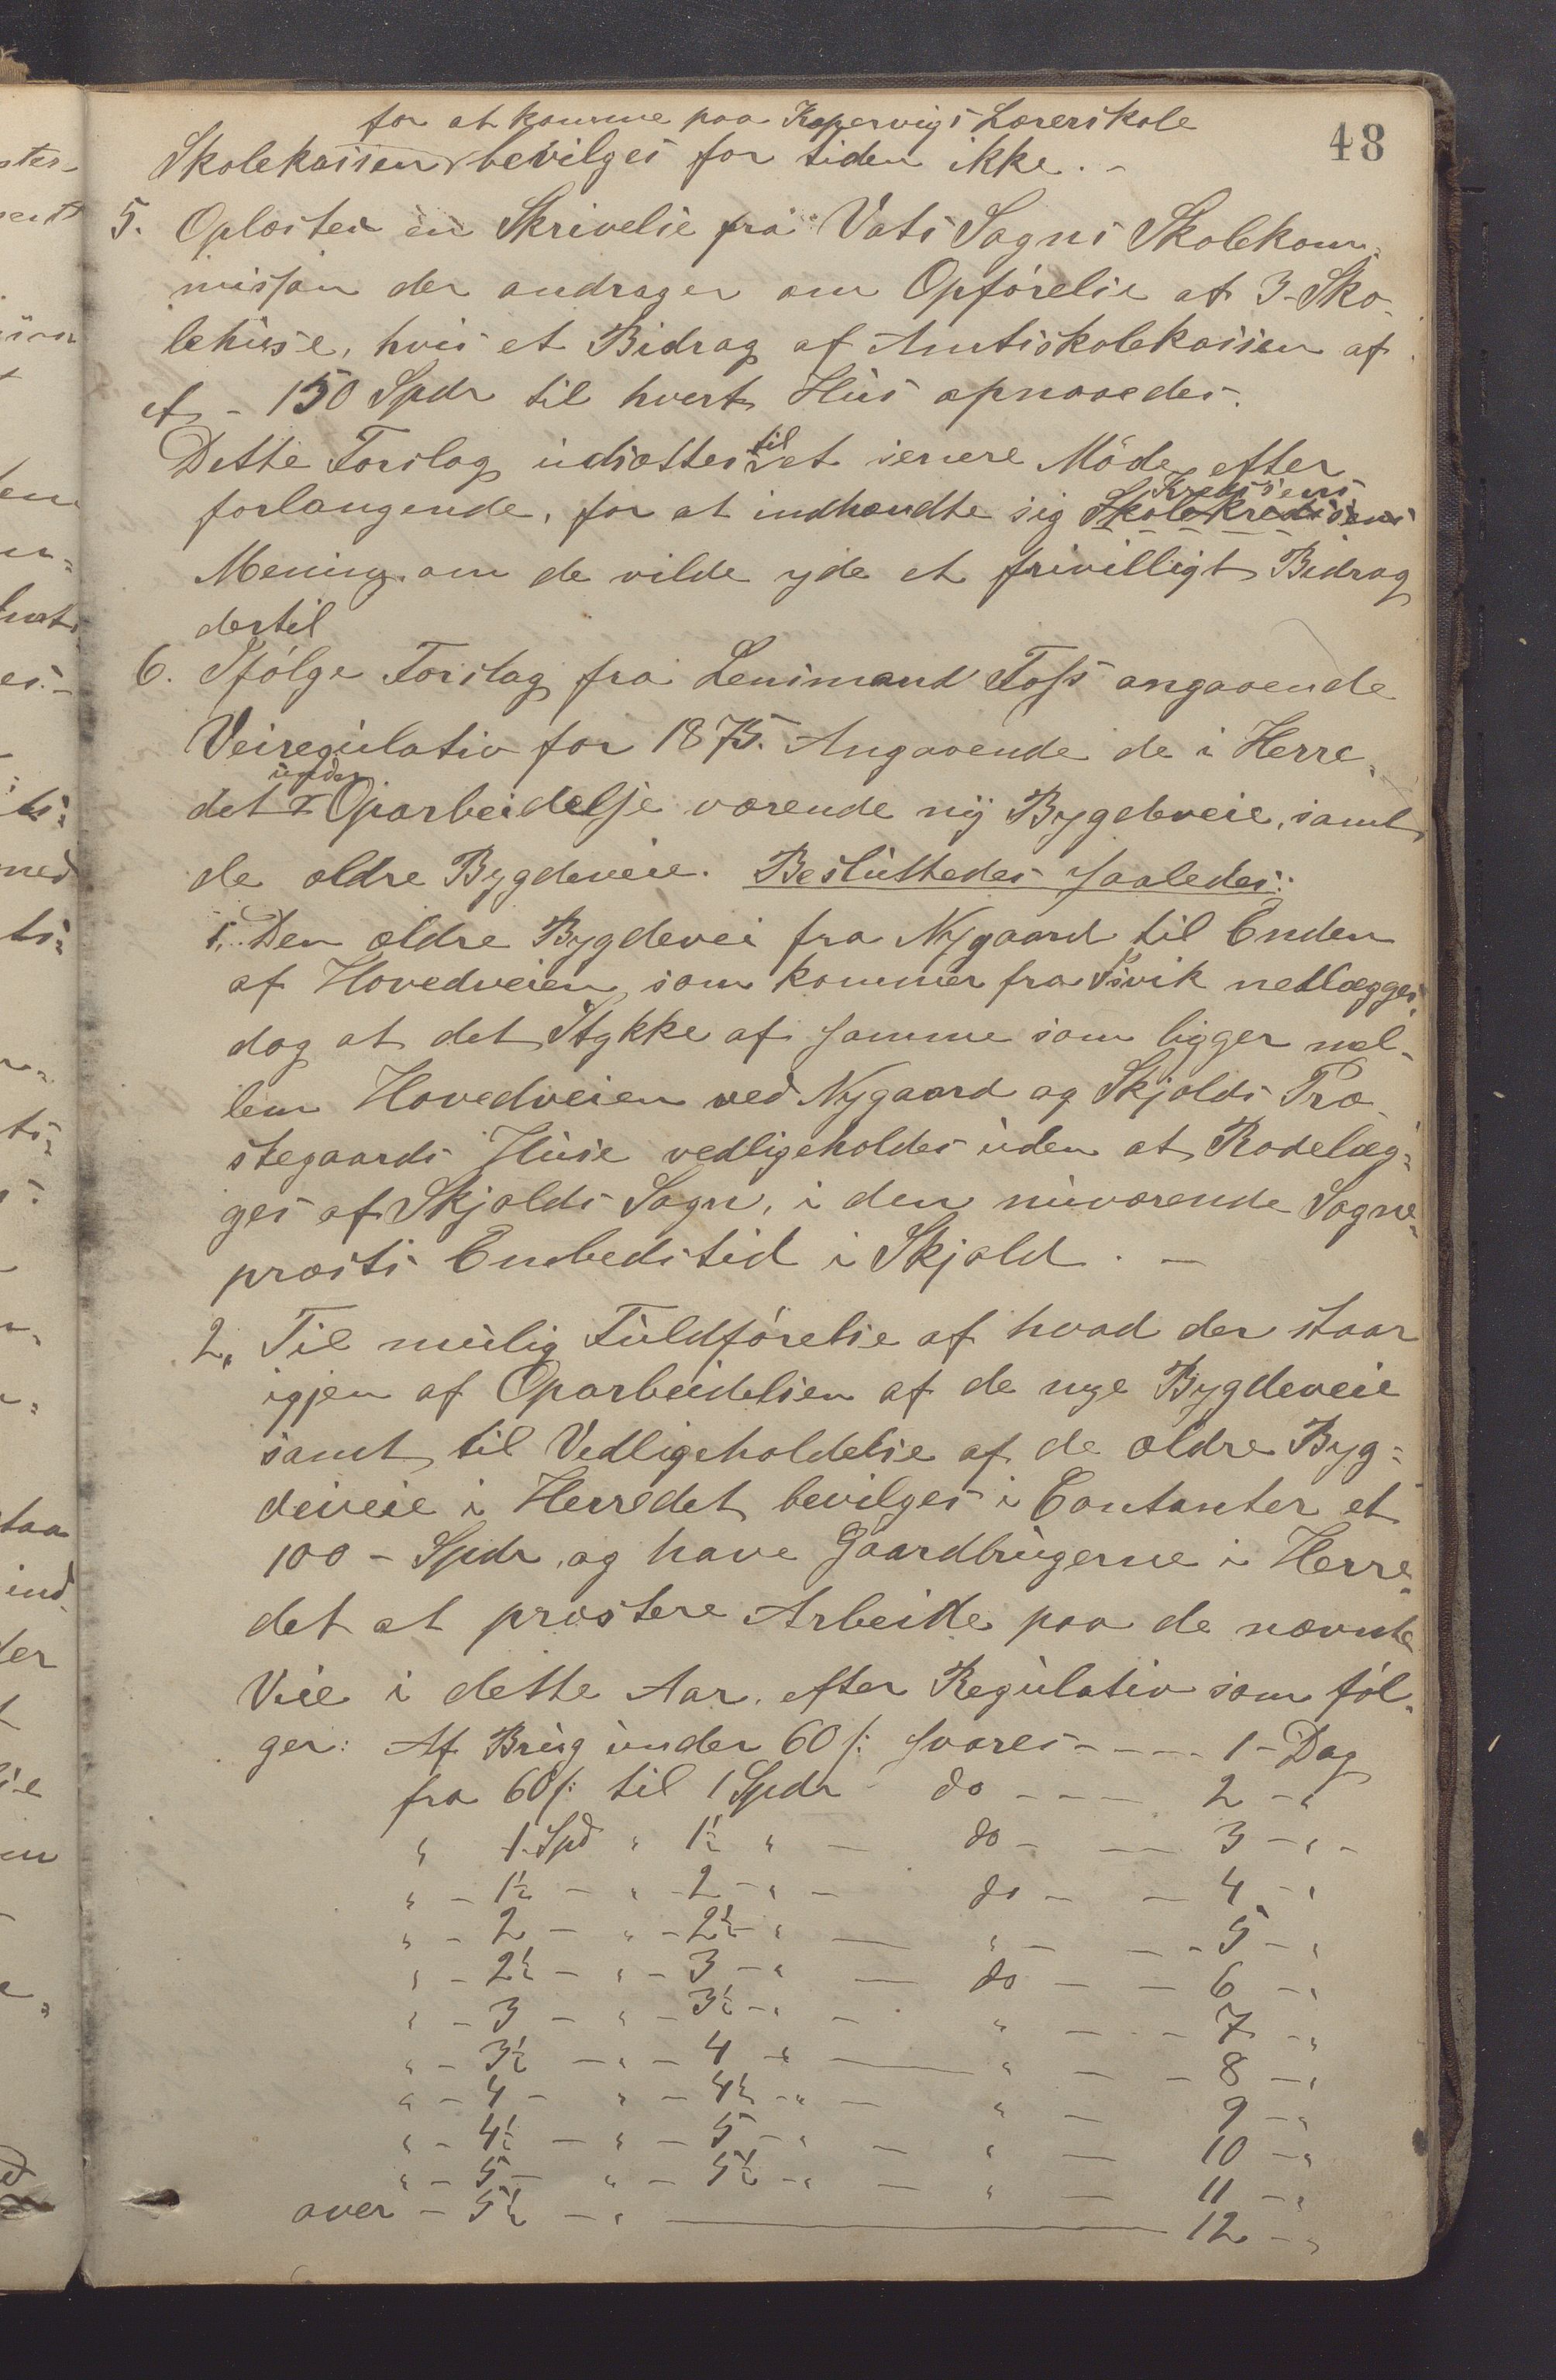 48
for at komme paa Kopervigs Lærerskole
Skolekassen bevilges for tiden ikke. -
5. Oplæstes en Skrivelse fra Vats Sogns Skolekom-
mission der andrager om Opførelse af 3 - Sko-
lehuse, hvis et Bidrag af Amtsskolekassen af
et - 150 Spdr til hvert Hus opnaaedes.
Dette Forslag udsættes til et senere Møde, efter
forlangende, for at indhændte sig Skolekredsens Kredsens
Mening om de vilde yde et frivilligt Bidrag
dertil
6. Ifølge Forslag fra Lensmand Foss angaaende
Veiregulativ for 1875. Angaaende de i Herre-
det under Oparbeidelse værende ny Bygdeveie, samt
de ældre Bygdeveie. Besluttedes saaledes:
1. Den ældre Bygdevei fra Nygaard til Enden
af Hovedveien som kommer fra Isvik nedlægges,
dog at det Stykke af samme som ligger mel-
lem Hovedveien ved Nygaard og Skjolds Præ-
stegaards Huse vedligeholdes uden at Rodelæg-
ges af Skjolds Sogn, i den nuværende Sogne-
præsts Embedstid i Skjold. -
2. Til mulig Fuldførelse af hvad der staar
igjen af Oparbeidelsen af de nye Bygdeveie
samt til Vedligeholdelse af de ældre Byg-
deveie i Herredet bevilges i Contanter et
100 - Spdr, og have Gaardbrugerne i Herre-
det at præstere Arbeide paa de nævnte
Veie i dette Aar, efter Regulativ som føl-
ger: Af Brug under 60 /: svares - - - - 1 - Dag
fra 60 /: til 1 Spdr do - - - 2 - "
" 1 Spd " 1½ " - do - - 3 - " -
" - 1½ - " 2 - " - do - - 4 - "
" - 2 - " - 2½ - " - " - - - 5 - "
" - 2½ - " - 3 - " - do - - 6 - "
" - 3 - " - 3½ - " - " - - - 7 - "
" - 3½ - " - 4 - " - " - - 8 - "
" - 4 - " - 4½ - " - " - 9 - "
" - 4½ - " - 5 - " - " - 10 - "
" - 5 - " - 5½ - " - " - 11 - "
over - 5½ - " - 12 - "